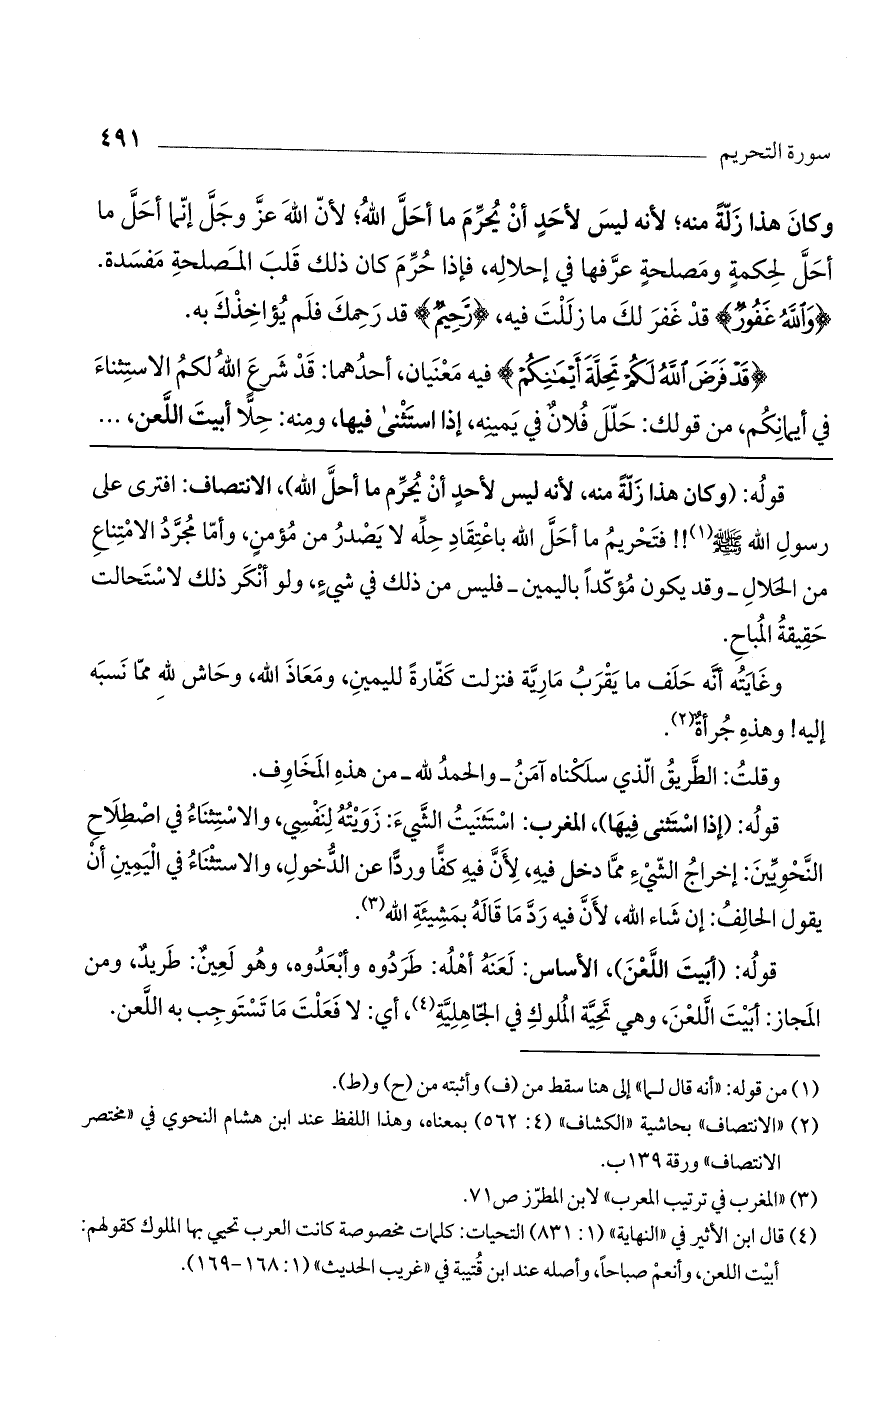 سورة التحريم ٤٩١
وكانَ هذا زَلّةً منه؛ لأنه ليسَ لأحَدٍ أنْ يُحرِّمَ ما أحَلَّ اللهُ؛ لأنّ اللهَ عزَّ وجَلَّ إنّما أحَلَّ ما
أحَلَّ لِحِكمةٍ ومَصلحةٍ عرَّفها في إحلالِه، فإذا حُرِّمَ كان ذلك قَلبَ المَصلحةِ مَفسَدة.
﴿وَٱللَّهُ غَفُورٌ﴾ قدْ غفَرَ لكَ ما زلَلْتَ فيه، ﴿رَّحِيمٌ﴾ قد رَحِمكَ فلَم يُؤاخِذْكَ به.
﴿قَدْ فَرَضَ ٱللَّهُ لَكُمْ تَحِلَّةَ أَيْمَـٰنِكُمْ﴾ فيه مَعْنَيان، أحدُهما: قَدْ شَرعَ اللهُ لكمُ الاستِثناءَ
في أيمانِكُم، من قولك: حَلّلَ فُلانٌ في يَمينِه، إذا استَثْنىٰ فيها، ومِنه: حِلًّا أبيتَ اللَّعن، ...
قولُه: (وكان هذا زلّةً منه، لأنه ليس لأحدٍ أنْ يُحرِّم ما أحلَّ الله)، الانتصاف: افترى على
رسولِ الله ﷺ(١)!! فتَحْريمُ ما أحَلَّ الله باعْتِقَادِ حِلِّه لا يَصْدرُ من مُؤمنٍ، وأمّا مُجرَّدُ الامْتِناعِ
من الحَلالِ ـ وقد يكون مُؤكّداً باليمين ـ فليس من ذلك في شيءٍ، ولو أنْكَر ذلك لاسْتَحالت
حَقِيقةُ المُباحِ.
وغَايَتُه أنَّه حَلَف ما يَقْرَبُ مَارِيَّة فنزلت كَفّارةً لليمينِ، ومَعَاذَ الله، وحَاش للهِ ممّا نَسبَه
إليه! وهذهِ جُرأةٌ(٢).
وقلتُ: الطَّريقُ الّذي سلَكْناه آمَنُ ـ والحمدُ لله ـ من هذهِ المَخَاوِف.
قولُه: (إذا اسْتَثنى فِيهَا)، المغرب: اسْتَثنَيتُ الشَّيءَ: زَوَيْتُهُ لِنَفْسِي، والاسْتِثنَاءُ في اصْطِلَاحِ
النَّحْوِيِّينَ: إخراجُ الشّيْءِ ممَّا دخل فيهِ، لِأَنَّ فيهِ كفًّا وردًّا عن الدُّخولِ، والاستثْنَاءُ في الْيَمِينِ أنْ
يقول الحالِفُ: إن شَاء الله، لأَنَّ فيه رَدَّ مَا قَالَهُ بمَشِيئَةِ الله(٣).
قولُه: (أبَيتَ اللَّعْنَ)، الأساس: لَعَنَهُ أهْلُه: طَرَدُوه وأبْعَدُوه، وهُو لَعِينٌ: طَرِيدٌ، ومن
المَجاز: أبَيْتَ الَّلعْنَ، وهي تَحِيَّة المُلوكِ في الجَاهِلِيَّةِ(٤)، أي: لا فَعَلْتَ مَا تَسْتَوجِب به اللَّعن.
(١) من قوله: «أنه قال لـما» إلى هنا سقط من (ف) وأثبته من (ح) و(ط).
(٢) «الانتصاف» بحاشية «الكشاف» (٤: ٥٦٢) بمعناه، وهذا اللفظ عند ابن هشام النحوي في «مختصر
الانتصاف» ورقة ١٣٩ب.
(٣) «المغرب في ترتيب المعرب» لابن المطرّز ص٧١.
(٤) قال ابن الأثير في «النهاية» (١: ٨٣١) التحيات: كلمات مخصوصة كانت العرب تحيي بها الملوك كقولهم:
أبيْت اللعن، وأنعمْ صباحاً، وأصله عند ابن قُتيبة في «غريب الحديث» (١: ١٦٨-١٦٩).